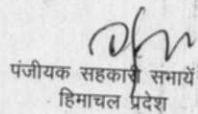 पंजीयक सहकारी सभायें
हिमाचल प्रदेश